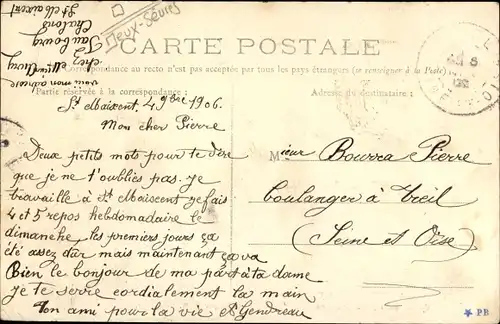 Deux-Sèvres
CARTE POSTALE
La Correspondance au recto n'est pas acceptée par tous les pays étrangers (se renseigner à la Poste)
Partie réservée à la correspondance :
Adresse du destinataire :
voici mon adresse
chez Mr
Faubourg
Chalons
St Maixent
St Maixent 4 9bre 1906.
Mon cher Pierre
Deux petits mots pour te dire
que je ne t'oublies pas. je
travaille à St Maiscent je fais
4 et 5 repos hebdomadaire le
dimanche, les premiers jours ça
été assez dur mais maintenant ça va
Bien le bonjour de ma part à ta dame
je te serre cordialement la main
Ton ami pour la vie A Gendreau
Mr ieur Bourra Pierre
boulanger à Creil
(Seine et Oise)
PB